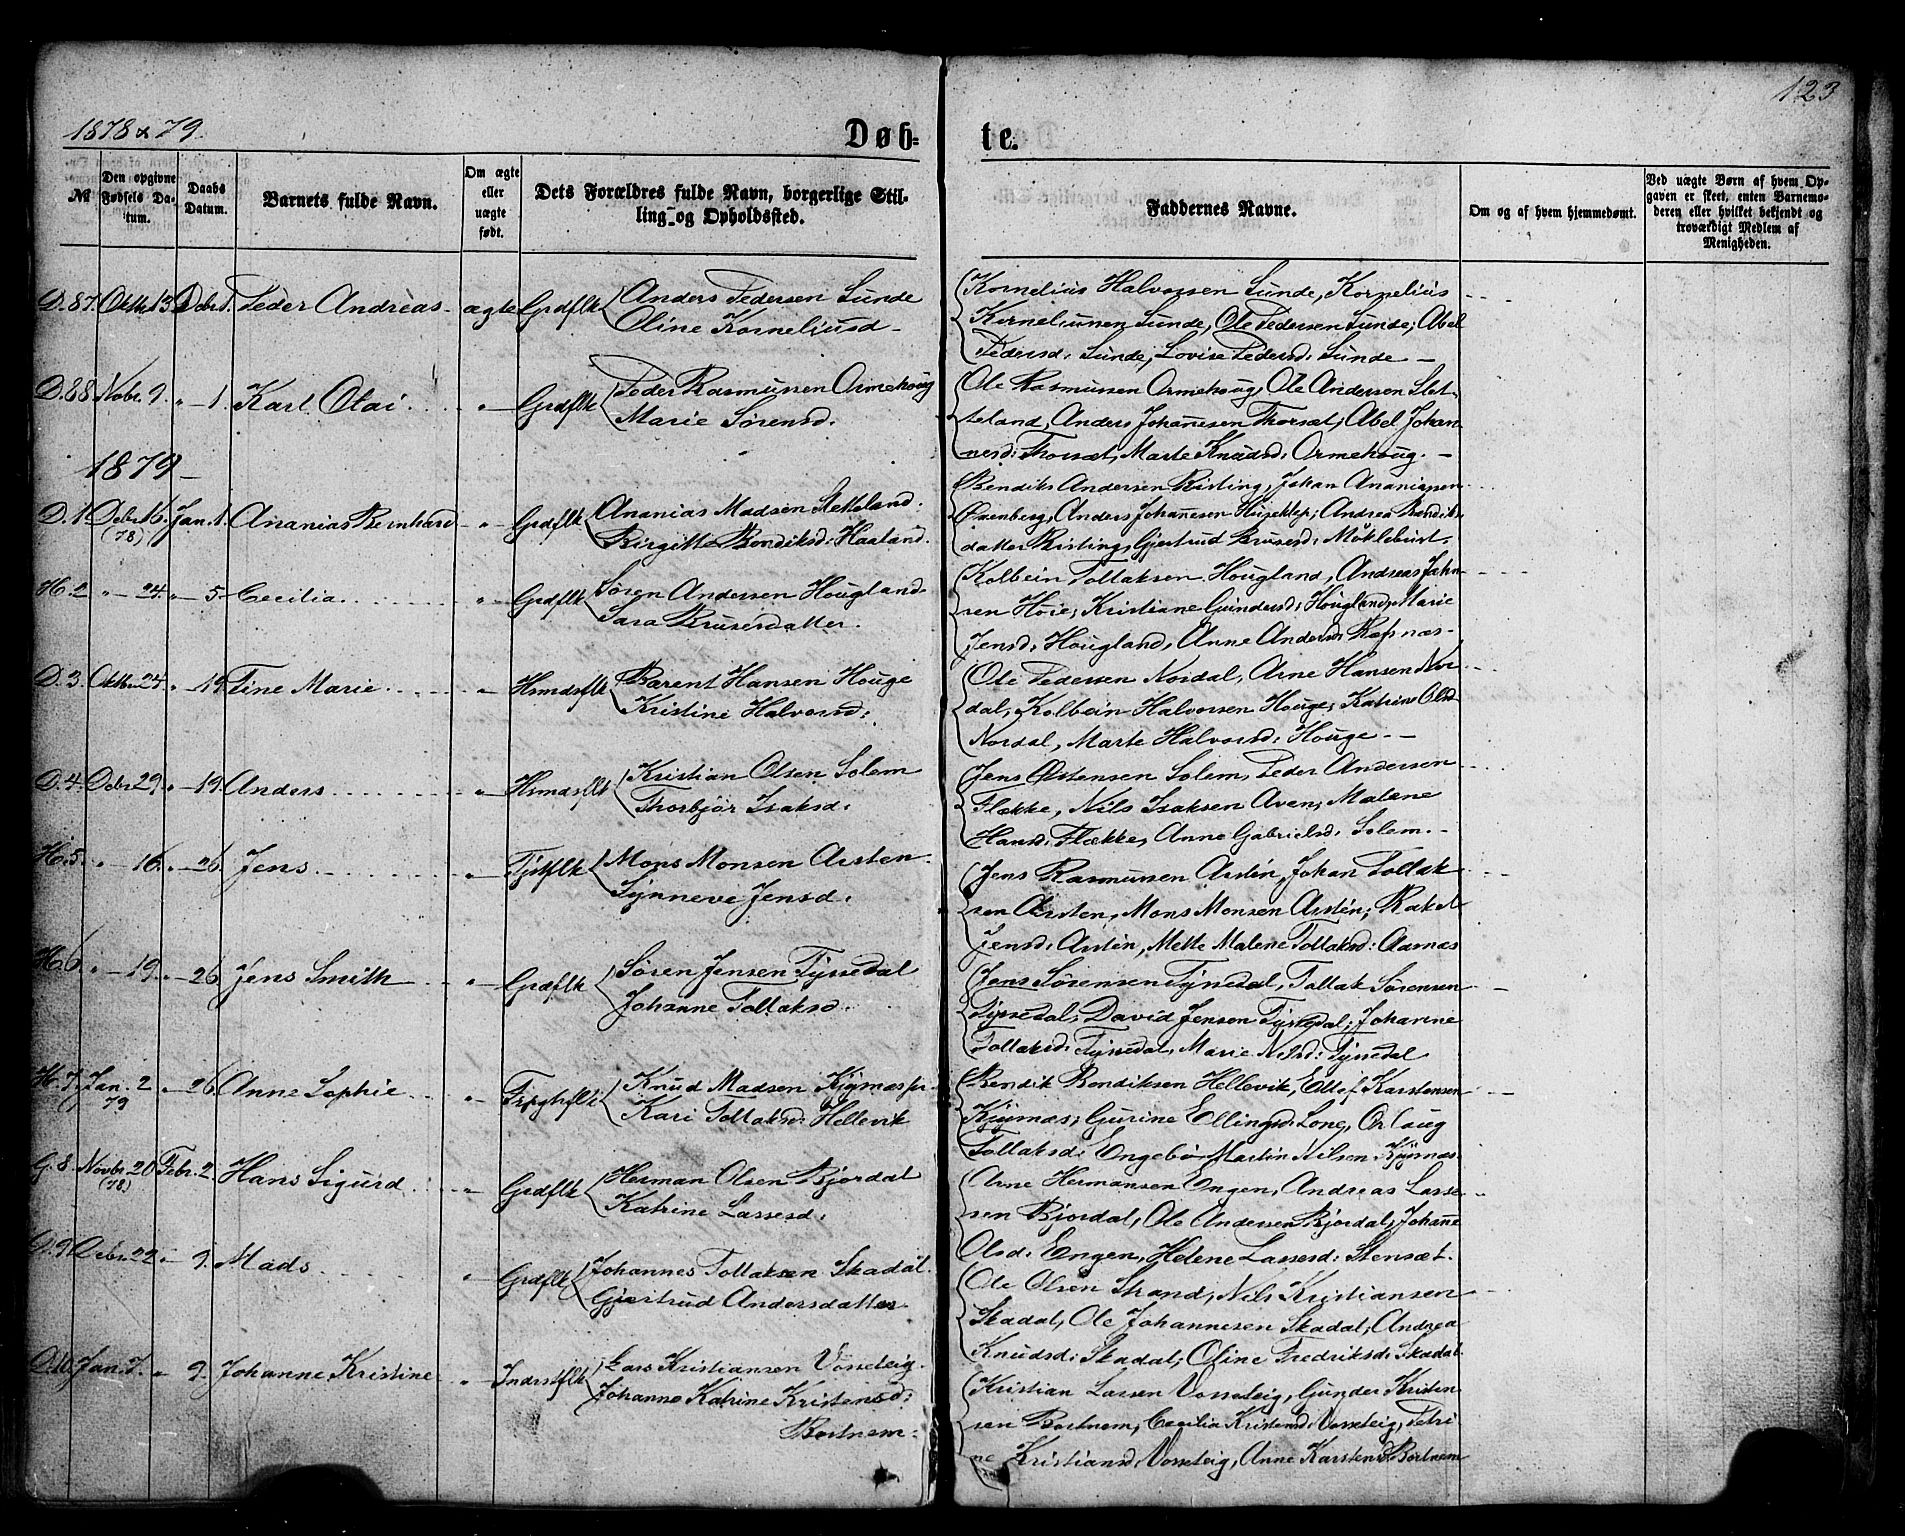 123
1878 & 79.
Døb=
te.
No
Den opgivne Fødsels Datum.
Daabs Datum.
Barnets fulde Navn.
Om ægte eller uægte født.
Dets Forældres fulde Navn, borgerlige Stilling og Opholdssted.
Faddernes Navne.
Om og af hvem hjemmedøbt.
Ved uægte Børn af hvem Opgaven er skeet, enten Barnemoderen eller hvilket bekjendt og troværdigt Medlem af Menigheden.
D. 87. Oktbr. 13. Debr. 1. Peder Andreas - ægte Grdflk Anders Pedersen Sunde
Oline Korneliusd -
Kornelius Halvorsen Sunde, Kornelius
Korneliusen Sunde, Ole Pedersen Sunde; Abel
Pedersd: Sunde, Lovise Pedersd: Sunde -
D. 88 Nobr. 9. " - 1. Karl Olai " Grdflk Peder Rasmussen Ormehoug
Marie Sørensd.
Ole Rasmussen Ormehoug, Ole Andersen Slet-
teland, Anders Johanesen Thorsæt; Abel Johan-
nesd: Thorsæt, Marte Knudsd: Ormehoug. -
1879 -
D. 1 Debr. 16. (78) Jan. 1. Ananias Bernhard " Grdflk Ananias Madsen Sletteland
Birgitte Bendiksd: Haaland.
Bendiks Andersen Risting, Johan Ananiassen
Anders Johanesen Andrea Bendiks
datter Risting, Gjertrud Brusesd: Møklebust.
H. 2 " - 24. " - 5 - Cecilia " Grdflk Søren Andersen Hougland
Sara Brusesdatter.
Kolbein Tollaksen Hougland, Andreas Jahn-
sen Høie; Kristiane Gundersd: Hougland, Marie
Jensd: Hougland, Anne Andersd: Ræfsnæs -
D. 3. Oktbr. 24 " - 19 Tine Marie " Hsmdsflk Bærent Hansen Houge
Kristine Halvorsd:
Ole Pedersen Nordal, Arne Hansen Nor-
dal, Kolbein Halvorsen Houge; Katrine Olsd
Nordal, Marte Halvorsd: Houge - -
D. 4. Debr. 29. " - 19. Anders " Hsmdsflk Kristian Olsen Solem
Thorbjør Isaksd:
Jens Østensen Solem, Peder Andersen
Flække, Nils Isaksen Aven; Malene
Hansd: Flække, Anne Gabrielsd: Solem. -
H. 5. " - 16. " - 26 Jens " Tjstflk Mons Monsen Arsten
Synneve Jensd.
Jens Rasmussen Arsten, Johan Tollak
sen Arsten, Mons Monsen Arsten; Rakel
Jensd: Arsten, Mette Malene Tollaksd: Aarnæs
H. 6. " - 19. " - 26 Jens Smith " Grdflk Søren Jensen Tyssedal
Johanne Tollaksd.
Jens Sørensen Tyssedal, Tollak Sørensen
Tyssedal, David Jensen Tyssedal; Johanne
Tollaksd: Tyssedal, Marie Nilsd: Tyssedal
H. 7. Jan. 2 79 " - 26. Anne Sophie " Knud Madsen
Kari Tollaksd: Hellevik
Bendik Bendiksen Hellevik, Ellef Karstensen
Gurine Ellingsd: Long, Orlaug
Tollaksd: Engebø Martin Nilsen
G. 8. Novbr. 20 (78) Febr. 2. Hans Sigurd " Grdflk Herman Olsen Bjordal
Katrine Lassesd.
Arne Hermansen Engen, Andreas Lasse-
sen Bjordal, Ole Andersen Bjordal; Johanne
Olsd: Engen, Helene Lassesd: Stensæt.
G. 9 Debr. 22 " - 9. Mads " Grdflk Johannes Tollaksen Skadal.
Gjertrud Andersdatter
Ole Olsen Strand, Nils Kristiansen
Skadal, Ole Johannesen Skadal; Andrea
Knudsd: Skadal; Oline Fredriksd: Skadal
10 Jan. 7. " 9. Johanne Kristine " Indrstflk Lars Kristiansen Vosseteig
Johanne Katrine Kristensd:
Bortnem
Kristian Larsen Vosseteig, Gunder Kristen
sen Bortnem; Cecilia Kristensd: Vosseteig, Petri
ne Kristiansd: Vosseteig, Anne Karstensd: Bortnem